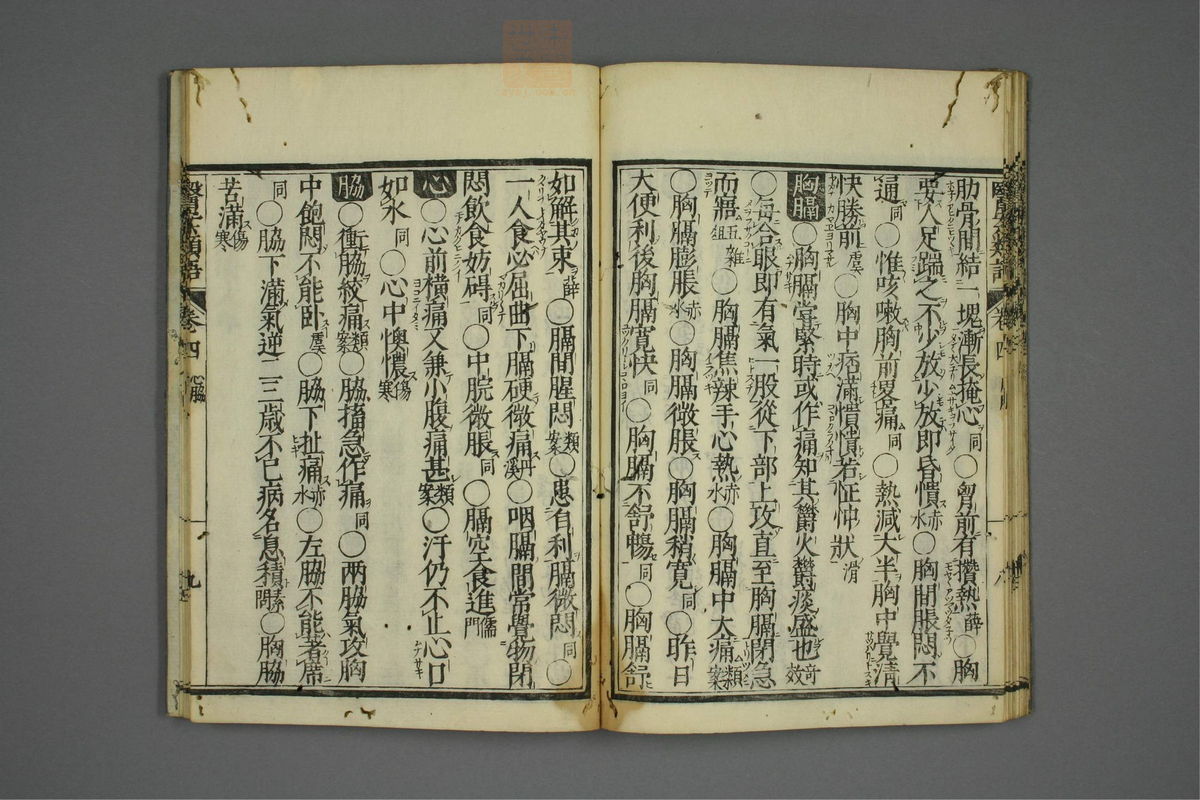 肋骨間結一塊漸長掩心同○胸前有攢熱薛○胸
要人足踹之不少放少放即昏憒赤水○胸間脹悶不
通同○惟咳嗽胸前畧痛同○熱減大半胸中覺清
快勝前虞○胸中痞滿憒憒若怔忡狀滑
胸膈○胸膈常緊時或作痛知其鬱火鬱痰盛也奇效
○每合眼即有氣一股從下部上攻直至胸膈閉急
而寤五雜俎○胸膈焦辣手心熱赤水○胸膈中大痛類案
○胸膈膨脹赤水○胸膈微脹○胸膈稍寬同○昨日
大便利後胸膈寬快同○胸膈不舒暢同○胸膈舒
如解其束薛○膈間腥悶類案○患有利膈微悶同○
一人食必屈曲下膈硬微痛丹溪○咽膈間常覺物閉
悶飲食妨碍同○中脘微脹同○膈空食進儒門
心○心前橫痛又兼小腹痛甚類案○汗仍不止心口
如氷同○心中懊憹傷寒
脇○衝脇絞痛類案○脇搐急作痛同○兩脇氣攻胸
中飽悶不能卧虞○脇下扯痛赤水○左脇不能著席
同○脇下滿氣逆二三歲不已病名息積素問○胸脇
苦滿傷寒
醫學類語 卷四 心脇 九
卷四 八